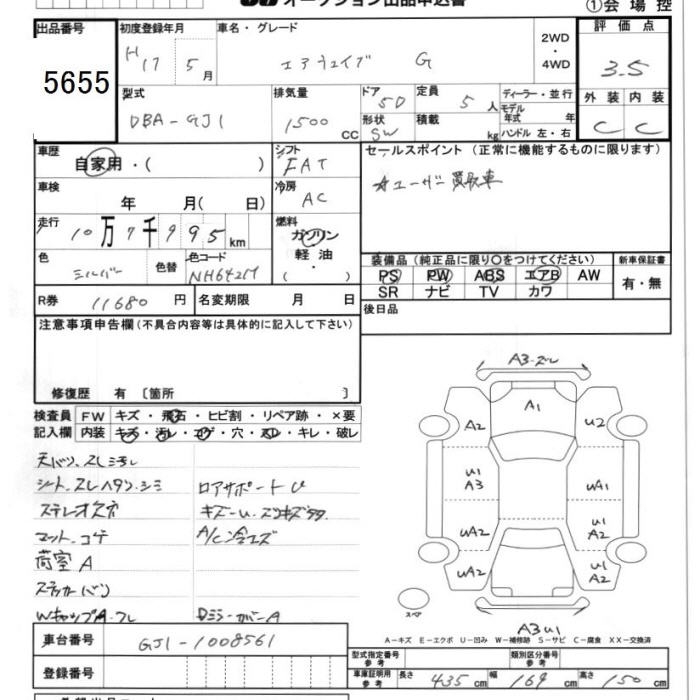 オークション出品申込書
①会場控
出品番号
5655
初度登録年月
H 17 5月
車名・グレード
エアウェイブ G
2WD・4WD
評価点
3.5
型式
DBA-GJ1
排気量
1500 CC
ドア 5D
形状 SW
定員 5人
積載 kg
ディーラー・並行
モデル年式 年
ハンドル 左・右
外装 内装
C C
車歴
自家用・( )
シフト
FAT
セールスポイント (正常に機能するものに限ります)
☆ユーザー買取車
車検
年 月( 日)
冷房
AC
走行
10万7千995km
燃料
ガソリン
軽油
・( )
色
シルバー
色替
色コード
NH642M
装備品(純正品に限り○をつけてください)
新車保証書
PS PW ABS エアB AW
有・無
SR ナビ TV カワ
R券 11680円
名変期限 月 日
後日品
注意事項申告欄(不具合内容等は具体的に記入して下さい)
修復歴 有〔箇所 〕
検査員記入欄
FW キズ・飛石・ヒビ割・リペア跡・×要
内装 キズ・汚レ・コゲ・穴・スレ・キレ・破レ
天バリ、スレ汚レ
シート、スレヘタリ、シミ
ロアサポートU
ステレオ欠
キズ-U、
マット、コゲ
A/C
荷室A
ステッカー
WキャップA
DミラーカバーA
A3
A1
A2
U2
U1
A3
UA1
UA2
U1
A2
UA2
U1
A2
スペア
A3 U1
A-キズ E-エクボ U-凹み W-補修跡 S-サビ C-腐食 XX-交換済
車台番号
GJ1-1008561
登録番号
型式指定番号 参考
類別区分番号 参考
車庫証明用 参考
長さ 435cm
幅 169cm
高さ 150cm